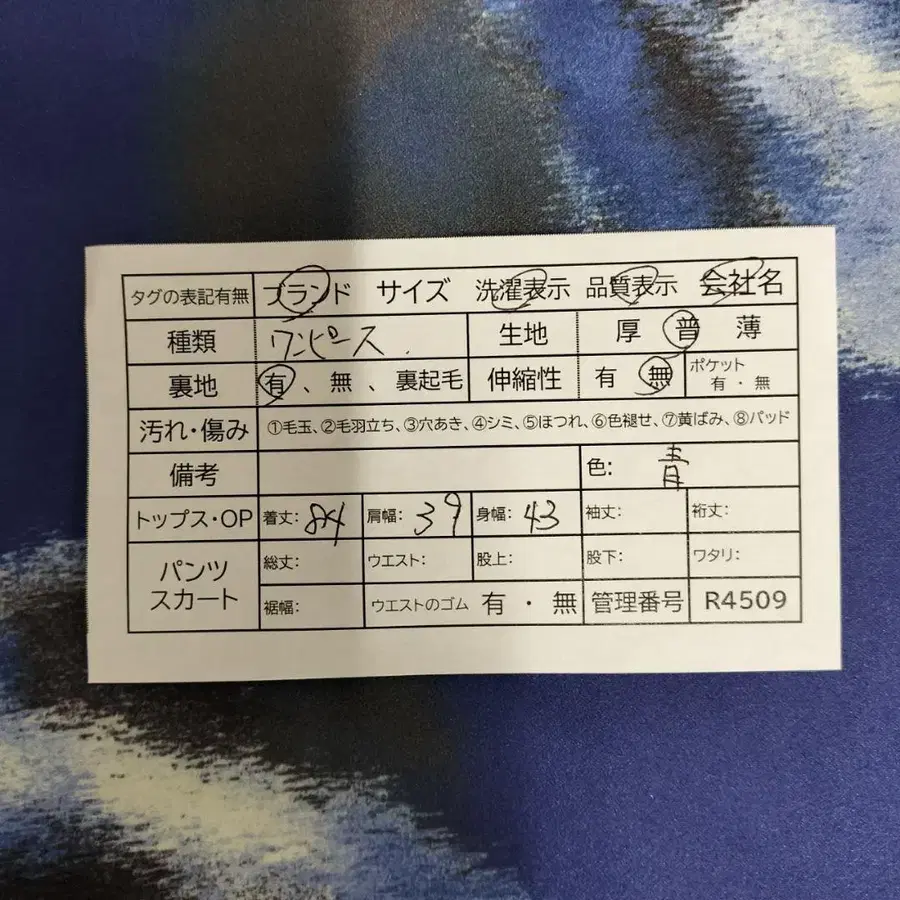 タグの表記有無 ブランド サイズ 洗濯表示 品質表示 会社名
種類 ワンピース. 生地 厚 普 薄
裏地 有、無、裏起毛 伸縮性 有 無 ポケット 有・無
汚れ・傷み ①毛玉、②毛羽立ち、③穴あき、④シミ、⑤ほつれ、⑥色褪せ、⑦黄ばみ、⑧パッド
備考 色: 青
トップス・OP 着丈: 84 肩幅: 39 身幅: 43 袖丈: 裄丈:
パンツ スカート 総丈: ウエスト: 股上: 股下: ワタリ:
裾幅: ウエストのゴム 有・無 管理番号 R4509